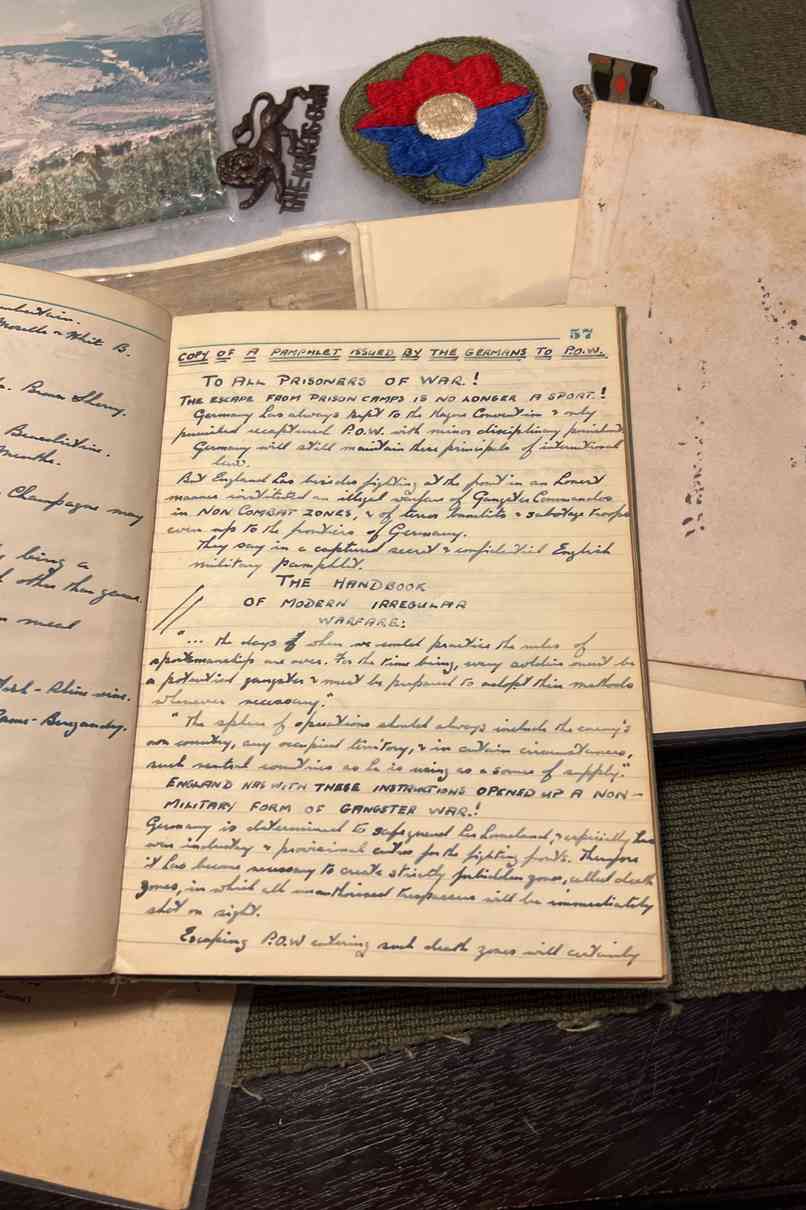 THE KING'S OWN
Moselle & Whit B.
Brown Sherry.
Benedictine.
Menthe.
Champagne may
being a
other than game.
meal
Hock - Rhine wine.
Burgandy.
57
COPY OF A PAMPHLET ISSUED BY THE GERMANS TO P.O.W.
TO ALL PRISONERS OF WAR!
THE ESCAPE FROM PRISON CAMPS IS NO LONGER A SPORT!
Germany has always kept to the Hague Convention & only
punished recaptured P.O.W. with minor disciplinary punishment
Germany will still maintain these principals of international
law.
But England has besides fighting at the front in an honest
manner instituted an illegal warfare of Gangster Commandos
in NON COMBAT ZONES, & of terror bandits & sabotage troops
even up to the frontiers of Germany.
They say in a captured secret & confidential English
military pamphlet.
THE HANDBOOK
OF MODERN IRREGULAR
WARFARE:
"... the days of when we could practice the rules of
sportsmanship are over. For the time being, every soldier must be
a potential gangster & must be prepared to adopt their methods
whenever necessary."
"The sphere of operations should always include the enemy's
own country, any occupied territory, & in certain circumstances,
such neutral countries as he is using as a source of supply."
ENGLAND HAS WITH THESE INSTRUCTIONS OPENED UP A NON-
MILITARY FORM OF GANGSTER WAR.!
Germany is determined to safeguard her homeland, & especially her
war industry & provisional centres for the fighting fronts. Therefore
it has become necessary to create strictly forbidden zones, called death
zones, in which all unauthorised trespassers will be immediately
shot on sight.
Escaping P.O.W entering such death zones will certainly